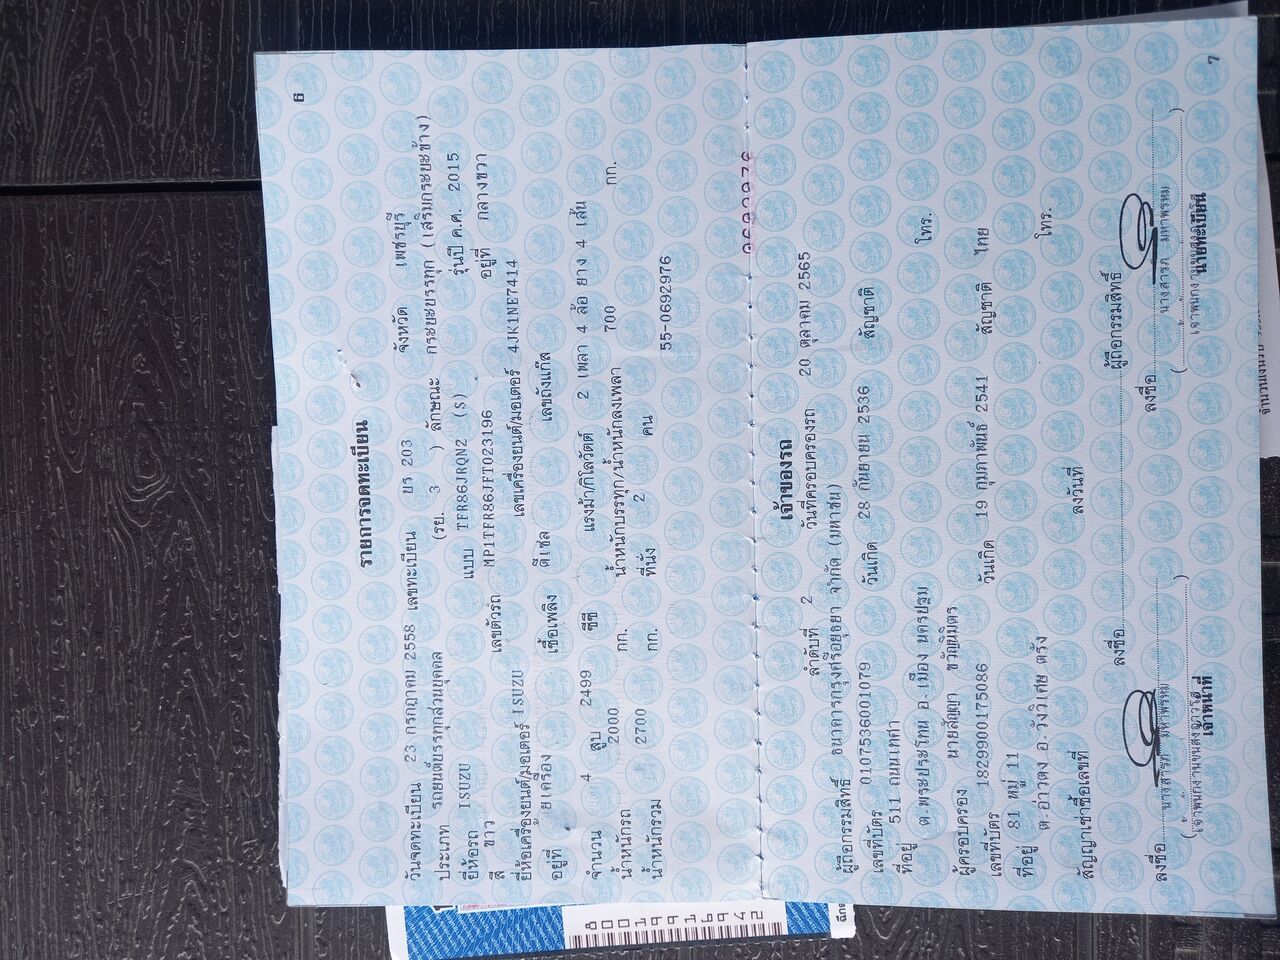 6
รายการจดทะเบียน
วันจดทะเบียน 23 กรกฎาคม 2558 เลขทะเบียน บร 203 จังหวัด เพชรบุรี
ประเภท รถยนต์บรรทุกส่วนบุคคล (รย. 3 ) ลักษณะ กระบะบรรทุก (เสริมกระบะข้าง)
ยี่ห้อรถ ISUZU แบบ TFR86JRQN2 (S) รุ่นปี ค.ศ. 2015
สี ขาว เลขตัวรถ MP1TFR86JFT023196 อยู่ที่ กลางขวา
ยี่ห้อเครื่องยนต์/มอเตอร์ ISUZU เลขเครื่องยนต์/มอเตอร์ 4JK1NE7414
อยู่ที่ เครื่อง เชื้อเพลิง ดีเซล เลขถังแก๊ส
จำนวน 4 สูบ 2499 ซีซี แรงม้า/กิโลวัตต์ 2 เพลา 4 ล้อ ยาง 4 เส้น
น้ำหนักรถ 2000 กก. น้ำหนักบรรทุก/น้ำหนักลงเพลา 700 กก.
น้ำหนักรวม 2700 กก. ที่นั่ง 2 คน
55-0692976
เจ้าของรถ
ลำดับที่ 2 วันที่ครอบครองรถ 20 ตุลาคม 2565
ผู้ถือกรรมสิทธิ์ ธนาคารกรุงศรีอยุธยา จำกัด (มหาชน)
เลขที่บัตร 0107536001079 วันเกิด 28 กันยายน 2536 สัญชาติ
ที่อยู่ 511 ถนนเทศา
ต.พระประโทน อ.เมือง นครปฐม โทร.
ผู้ครอบครอง นายสัญญา ขวัญนิมิตร
เลขที่บัตร 1829900175086 วันเกิด 19 กุมภาพันธ์ 2541 สัญชาติ ไทย
ที่อยู่ 81 หมู่ 11
ต.อ่าวตง อ.วังวิเศษ ตรัง โทร.
สัญญาเช่าซื้อเลขที่ ลงวันที่
ลงชื่อ ผู้ถือกรรมสิทธิ์
ลงชื่อ ลงชื่อ
นางสารภี มหาพรหม นางสารภี มหาพรหม
เจ้าหน้าที่ นายทะเบียน
7